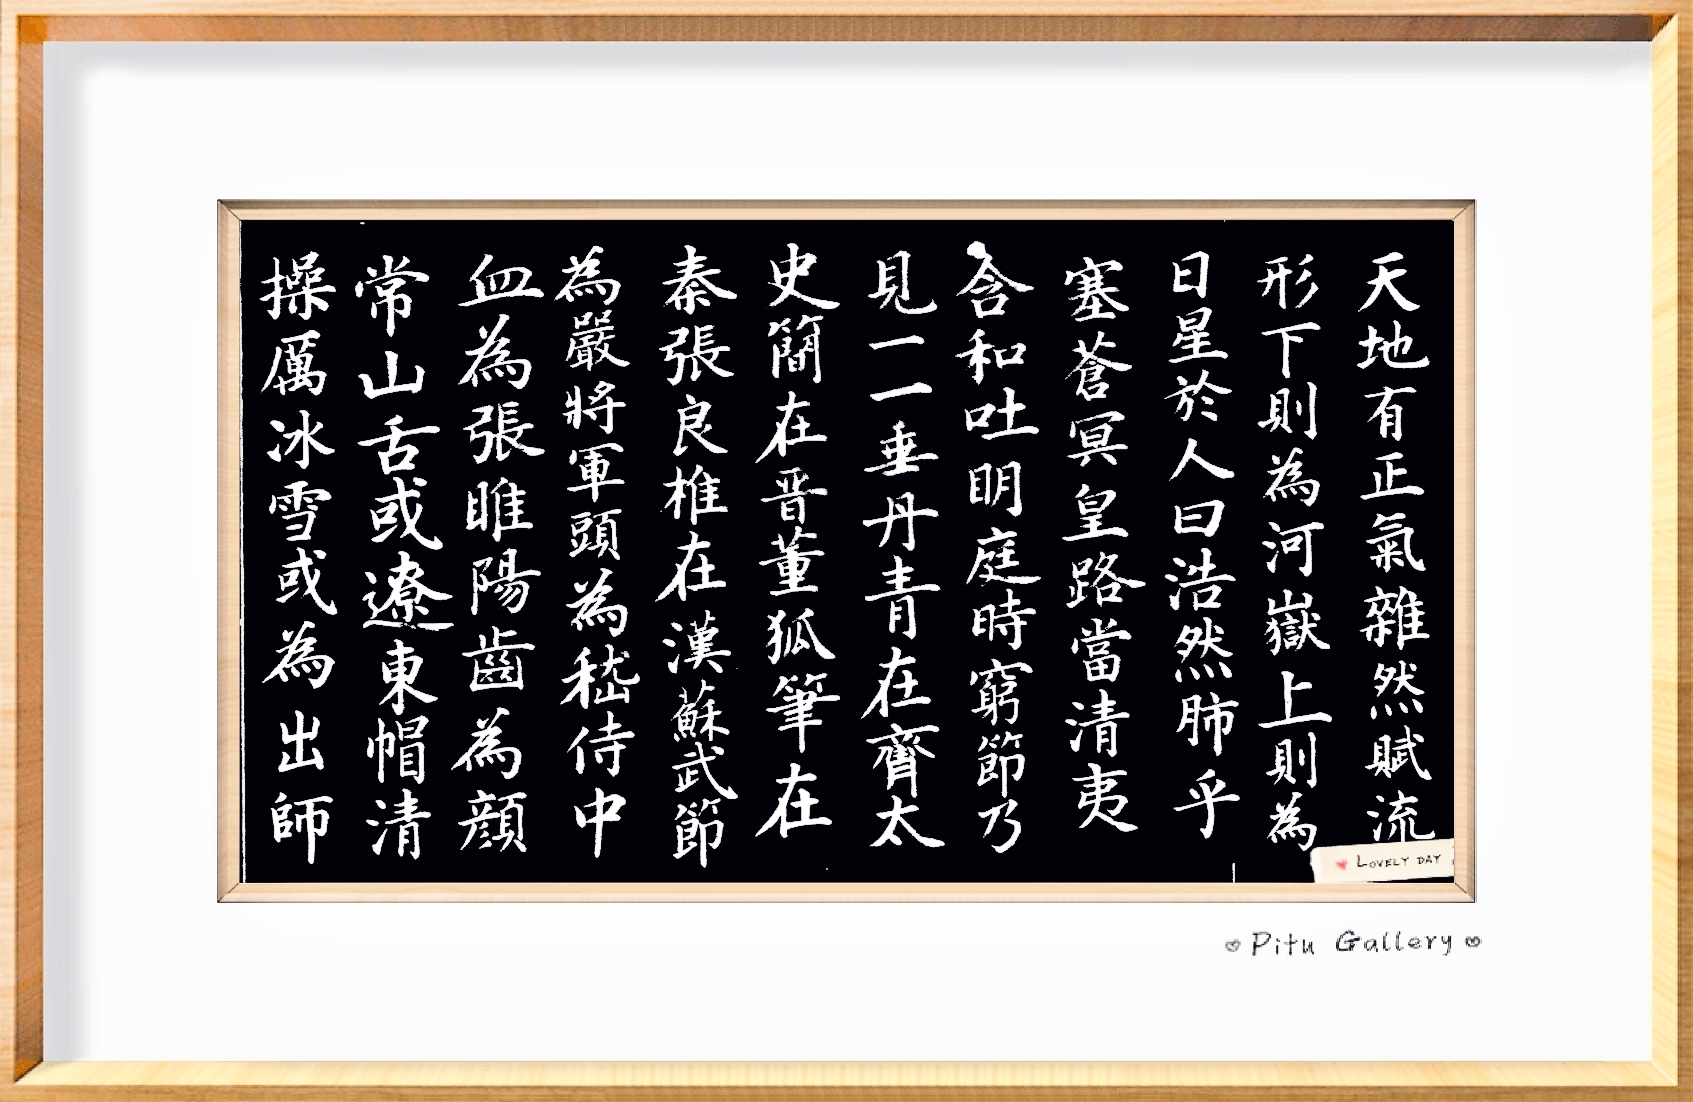 天地有正氣雜然賦流
形下則為河嶽上則為
日星於人曰浩然肺乎
塞蒼冥皇路當清夷
含和吐明庭時窮節乃
見一一垂丹青在齊太
史簡在晋董狐筆在
秦張良椎在漢蘇武節
為嚴將軍頭為嵇侍中
血為張睢陽齒為顏
常山舌或遼東帽清
操厲冰雪或為出師
LOVELY DAY
Pitu Gallery